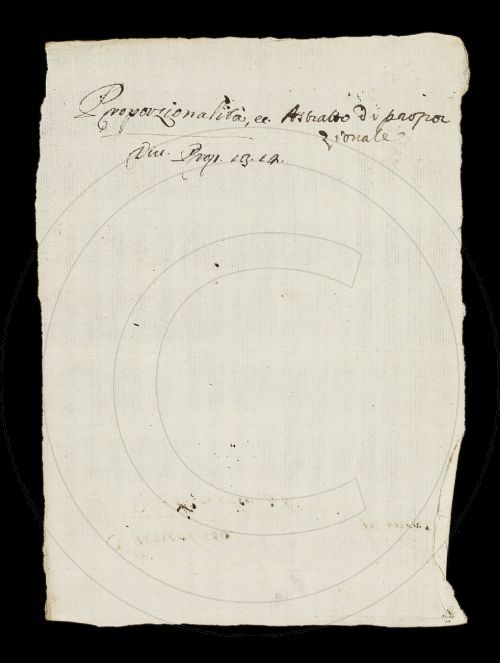 Proporzionalità, e Astratto di propor
zionale
Viv. Prop. 13. 14.